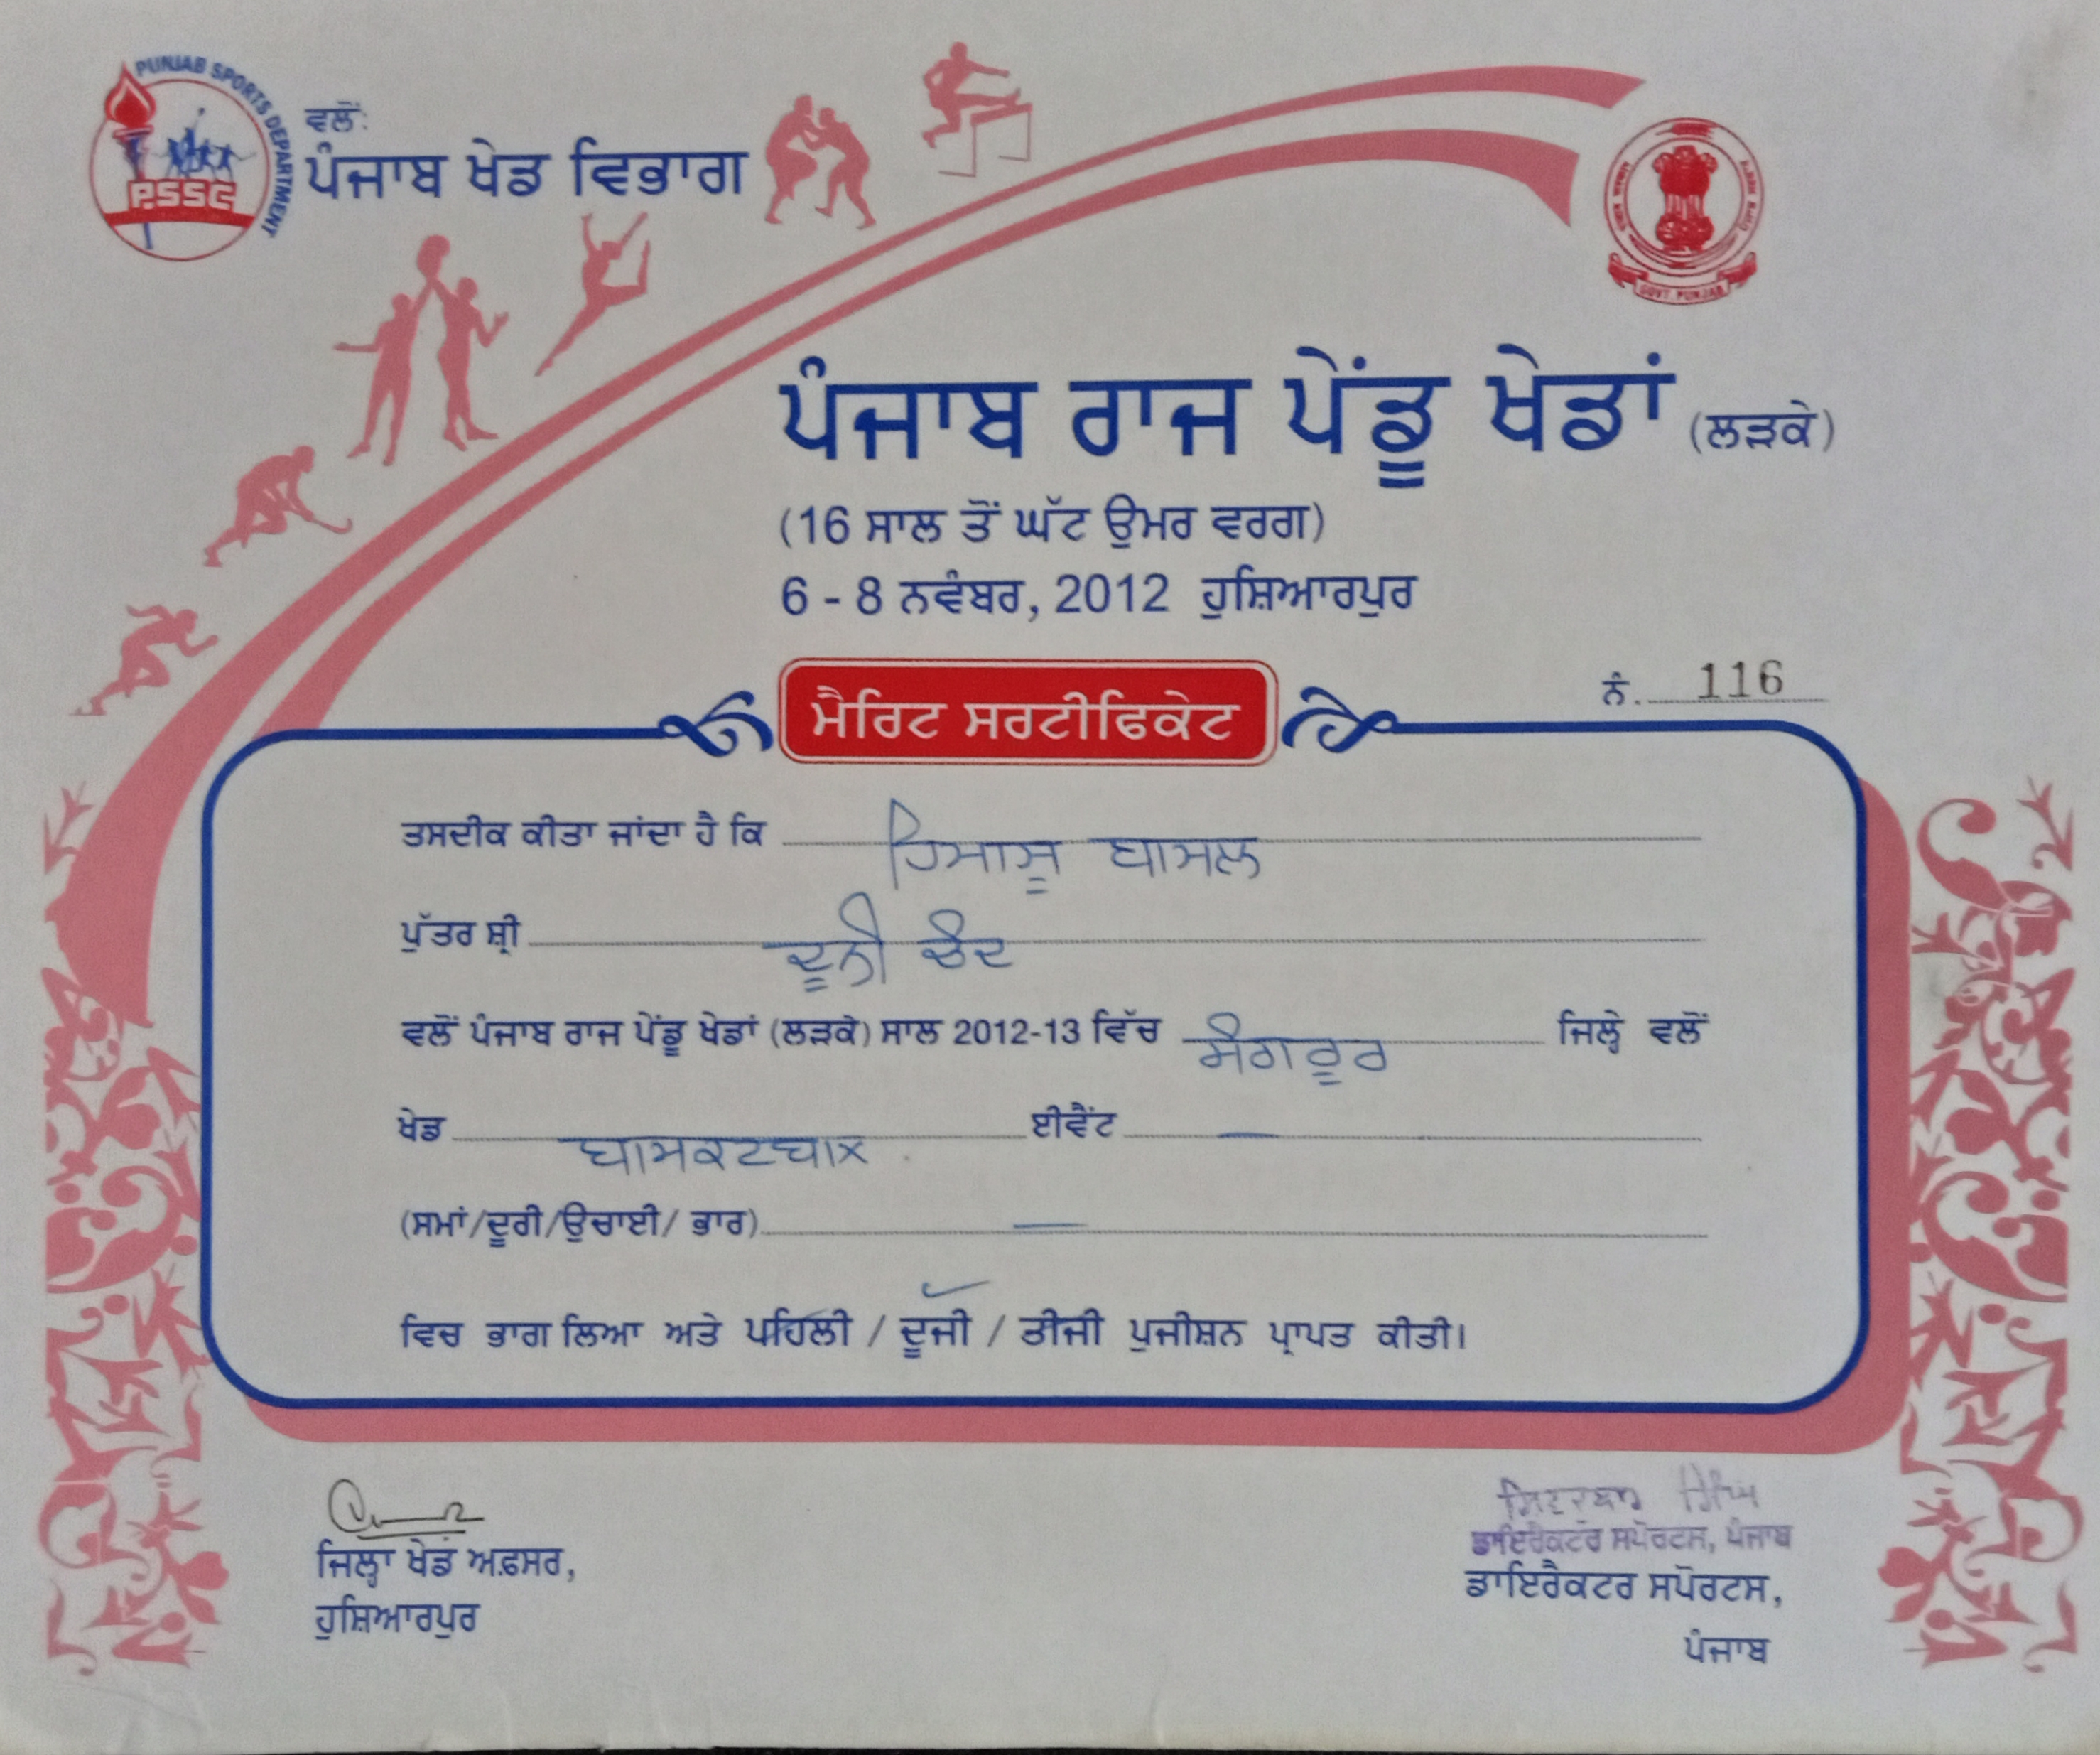 PUNJAB SPORTS DEPARTMENT
P.SSC
ਵਲੋਂ:
ਪੰਜਾਬ ਖੇਡ ਵਿਭਾਗ
GOVT. PUNJAB
ਪੰਜਾਬ ਰਾਜ ਪੇਂਡੂ ਖੇਡਾਂ (ਲੜਕੇ)
(16 ਸਾਲ ਤੋਂ ਘੱਟ ਉਮਰ ਵਰਗ)
6 - 8 ਨਵੰਬਰ, 2012 ਹੁਸ਼ਿਆਰਪੁਰ
ਨੰ. 116
ਮੈਰਿਟ ਸਰਟੀਫਿਕੇਟ
ਤਸਦੀਕ ਕੀਤਾ ਜਾਂਦਾ ਹੈ ਕਿ ਹਿਮਾਸੂ ਬਾਸਲ
ਪੁੱਤਰ ਸ਼੍ਰੀ ਦੂਨੀ ਚੰਦ
ਵਲੋਂ ਪੰਜਾਬ ਰਾਜ ਪੇਂਡੂ ਖੇਡਾਂ (ਲੜਕੇ) ਸਾਲ 2012-13 ਵਿੱਚ ਸੰਗਰੂਰ ਜਿਲ੍ਹੇ ਵਲੋਂ
ਖੇਡ ਬਾਸਕਟਬਾਲ ਈਵੈਂਟ —
(ਸਮਾਂ/ਦੂਰੀ/ਉਚਾਈ/ ਭਾਰ) —
ਵਿਚ ਭਾਗ ਲਿਆ ਅਤੇ ਪਹਿਲੀ / ਦੂਜੀ / ਤੀਜੀ ਪੁਜੀਸ਼ਨ ਪ੍ਰਾਪਤ ਕੀਤੀ।
ਜਿਲ੍ਹਾ ਖੇਡ ਅਫ਼ਸਰ,
ਹੁਸ਼ਿਆਰਪੁਰ
ਸਿੰਘ
ਡਾਇਰੈਕਟਰ ਸਪੋਰਟਸ, ਪੰਜਾਬ
ਡਾਇਰੈਕਟਰ ਸਪੋਰਟਸ,
ਪੰਜਾਬ